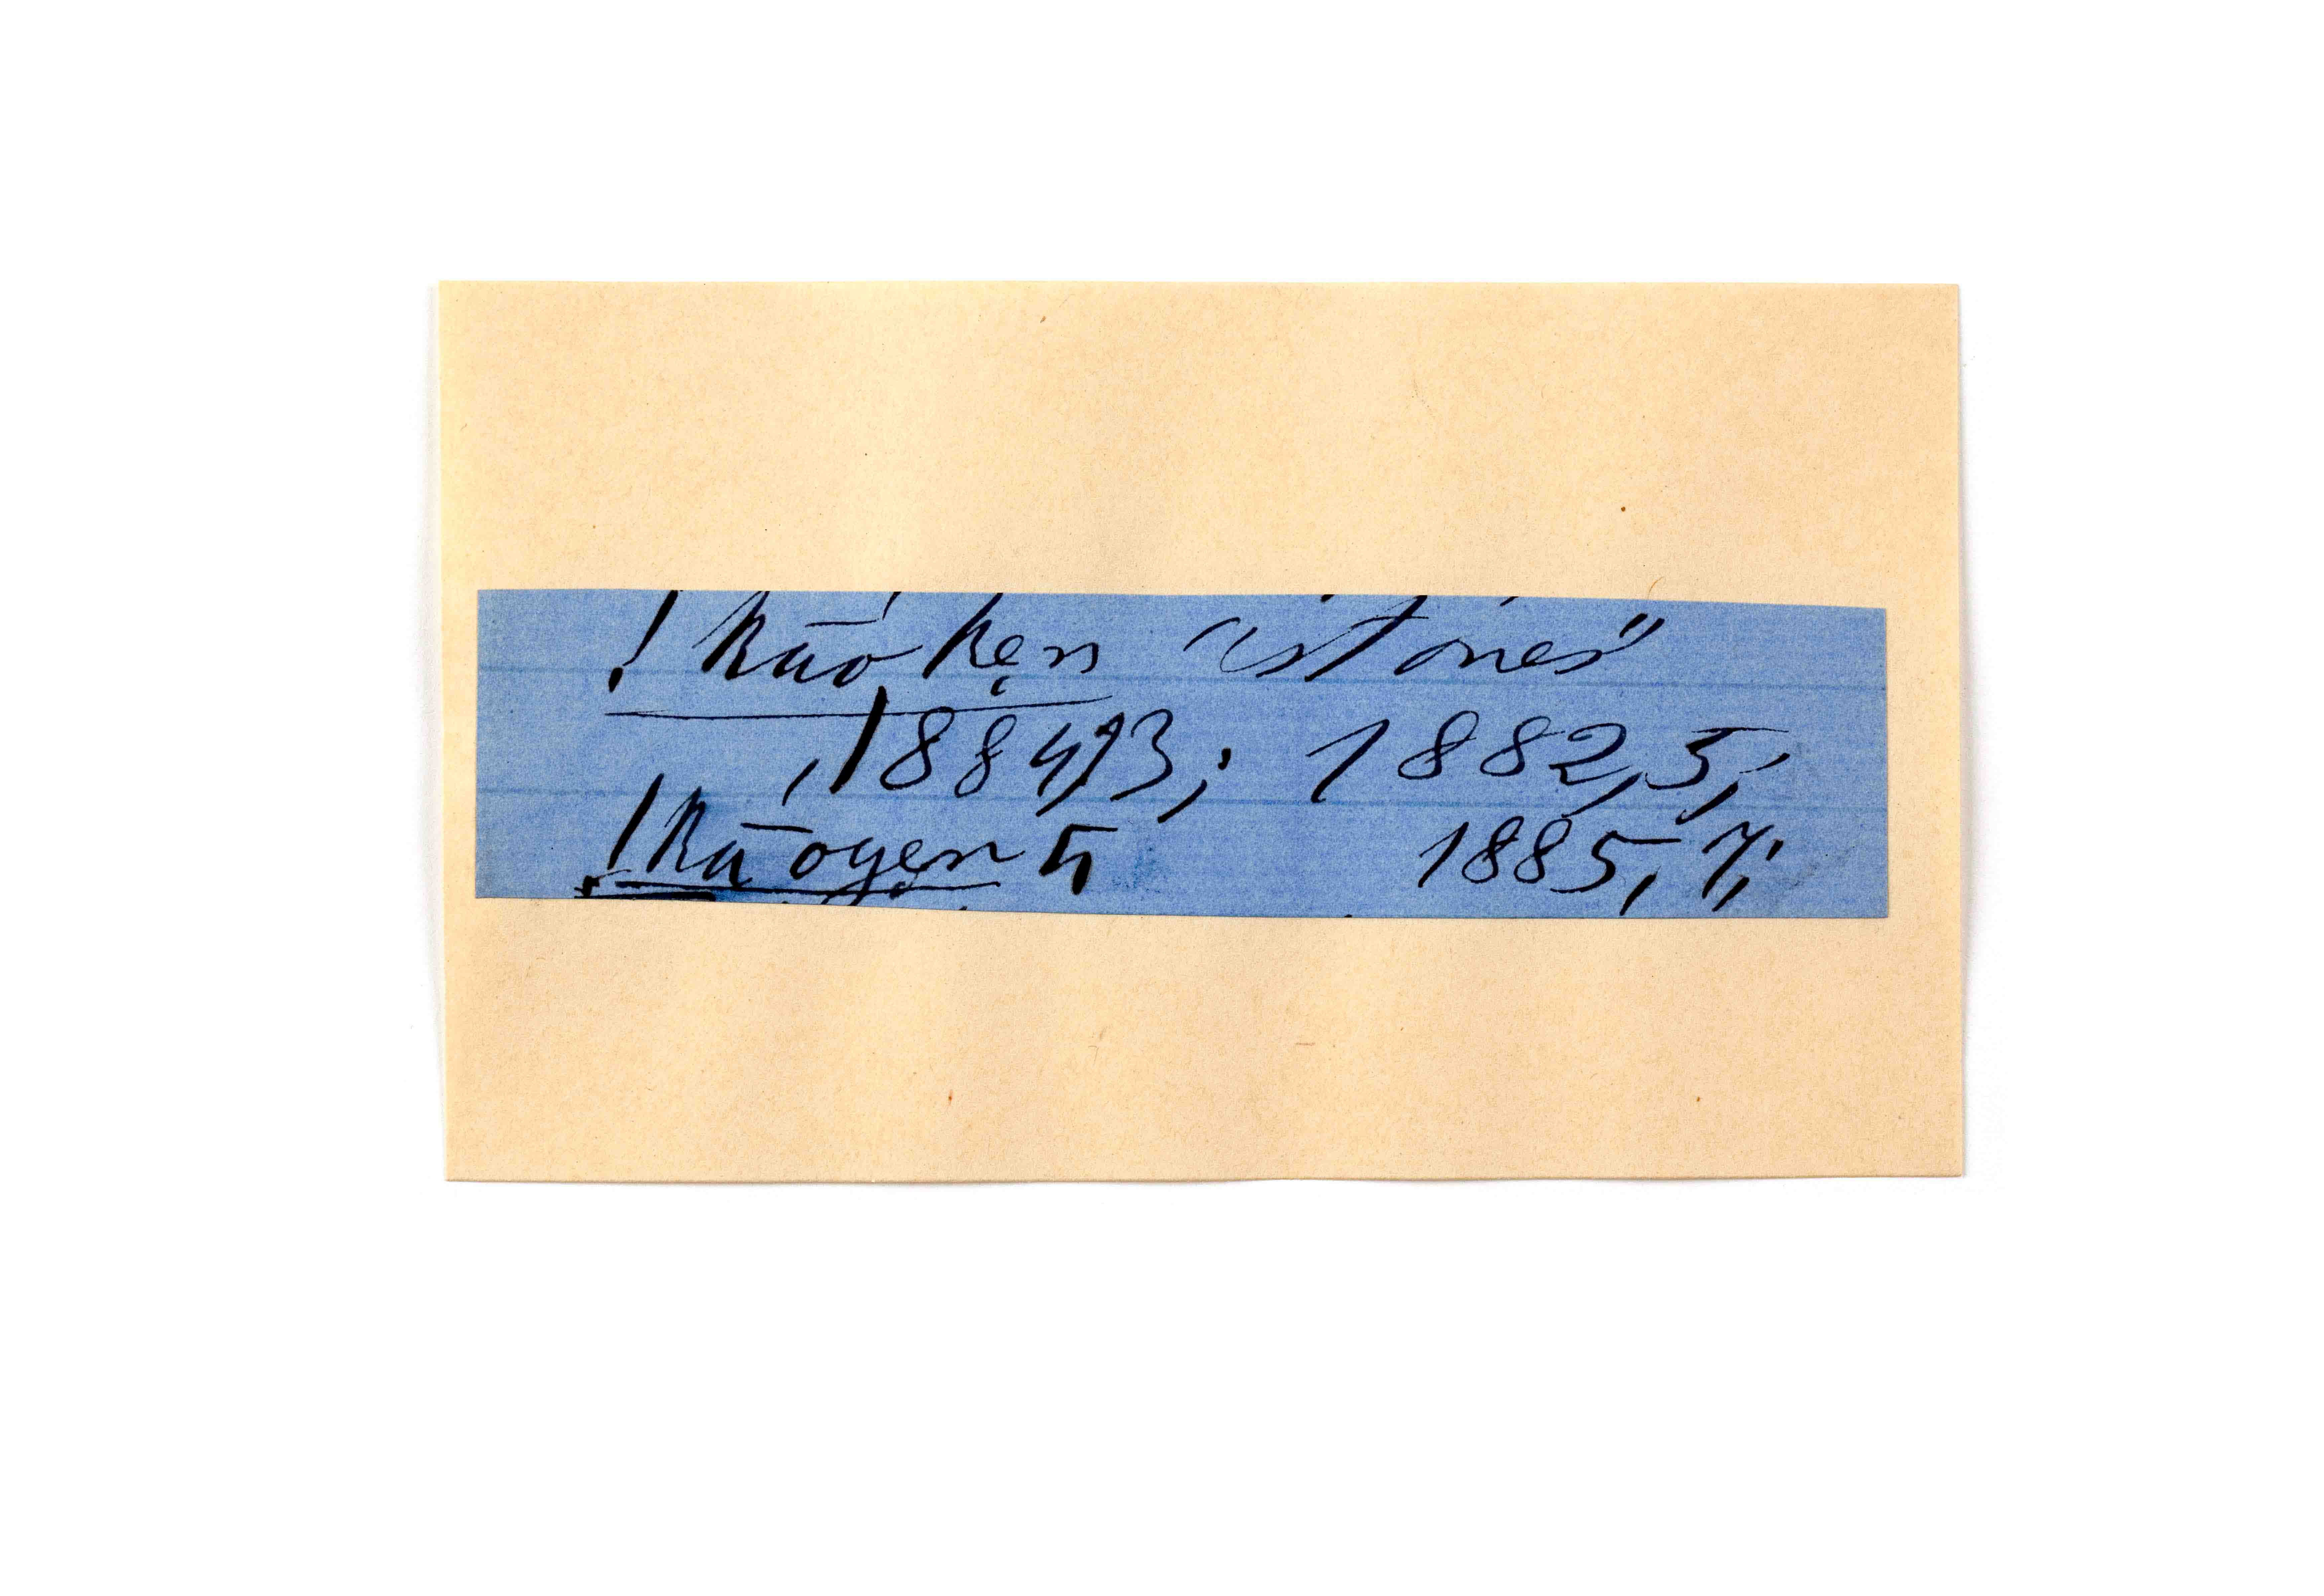 !kāoken "stones"
, 1884,3; 1882,5,
!kāogen 1885, 7;